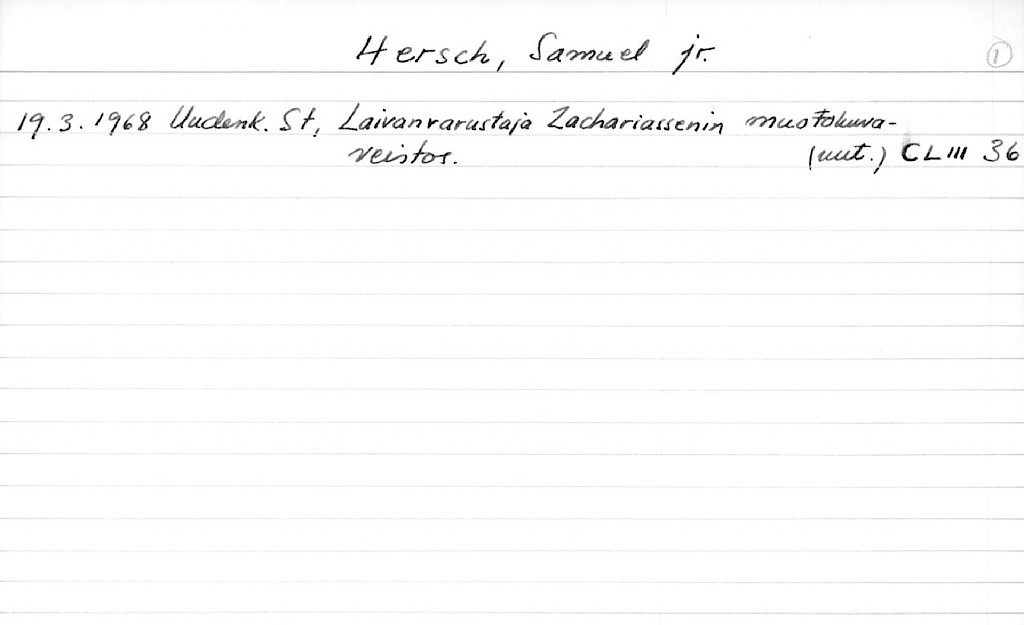 Hersch, Samuel jr. 1
19.3.1968 Uudenk. St, Laivanvarustaja Zachariassenin muotokuva-
veistos. (uut.) CLIII 36